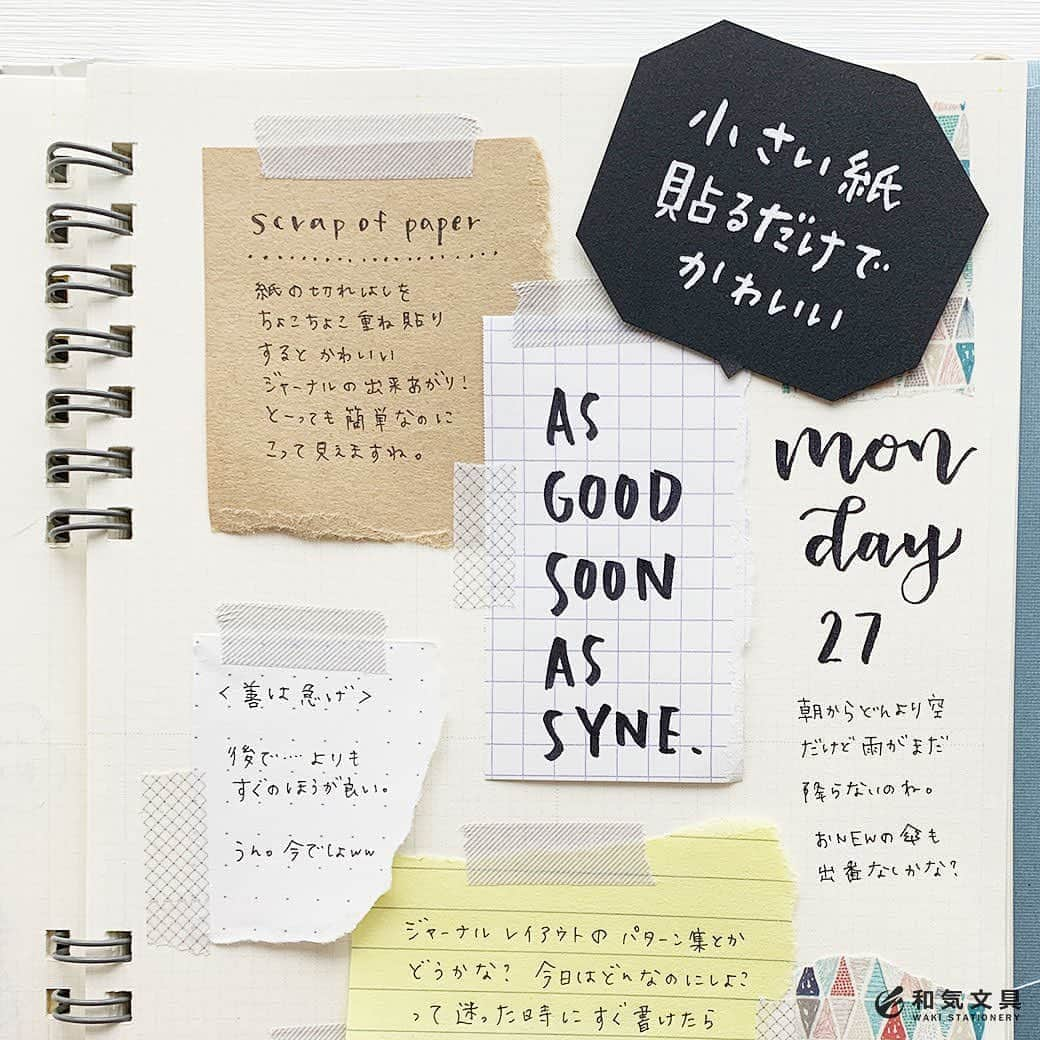 小さい紙
貼るだけで
かわいい
scrap of paper
紙の切れはしを
ちょこちょこ重ね貼り
するとかわいい
ジャーナルの出来あがり!
とーっても簡単なのに
こって見えますね。
AS
GOOD
SOON
AS
SYNE.
mon
day
27
朝からどんより空
だけど雨がまだ
降らないのね。
おNEWの傘も
出番なしかな?
<善は急げ>
後で…よりも
すぐのほうが良い。
うん。今でしょww
ジャーナルレイアウトのパターン集とか
どうかな? 今日はどんなのにしよ?
って迷った時にすぐ書けたら
和気文具
WAKI STATIONERY